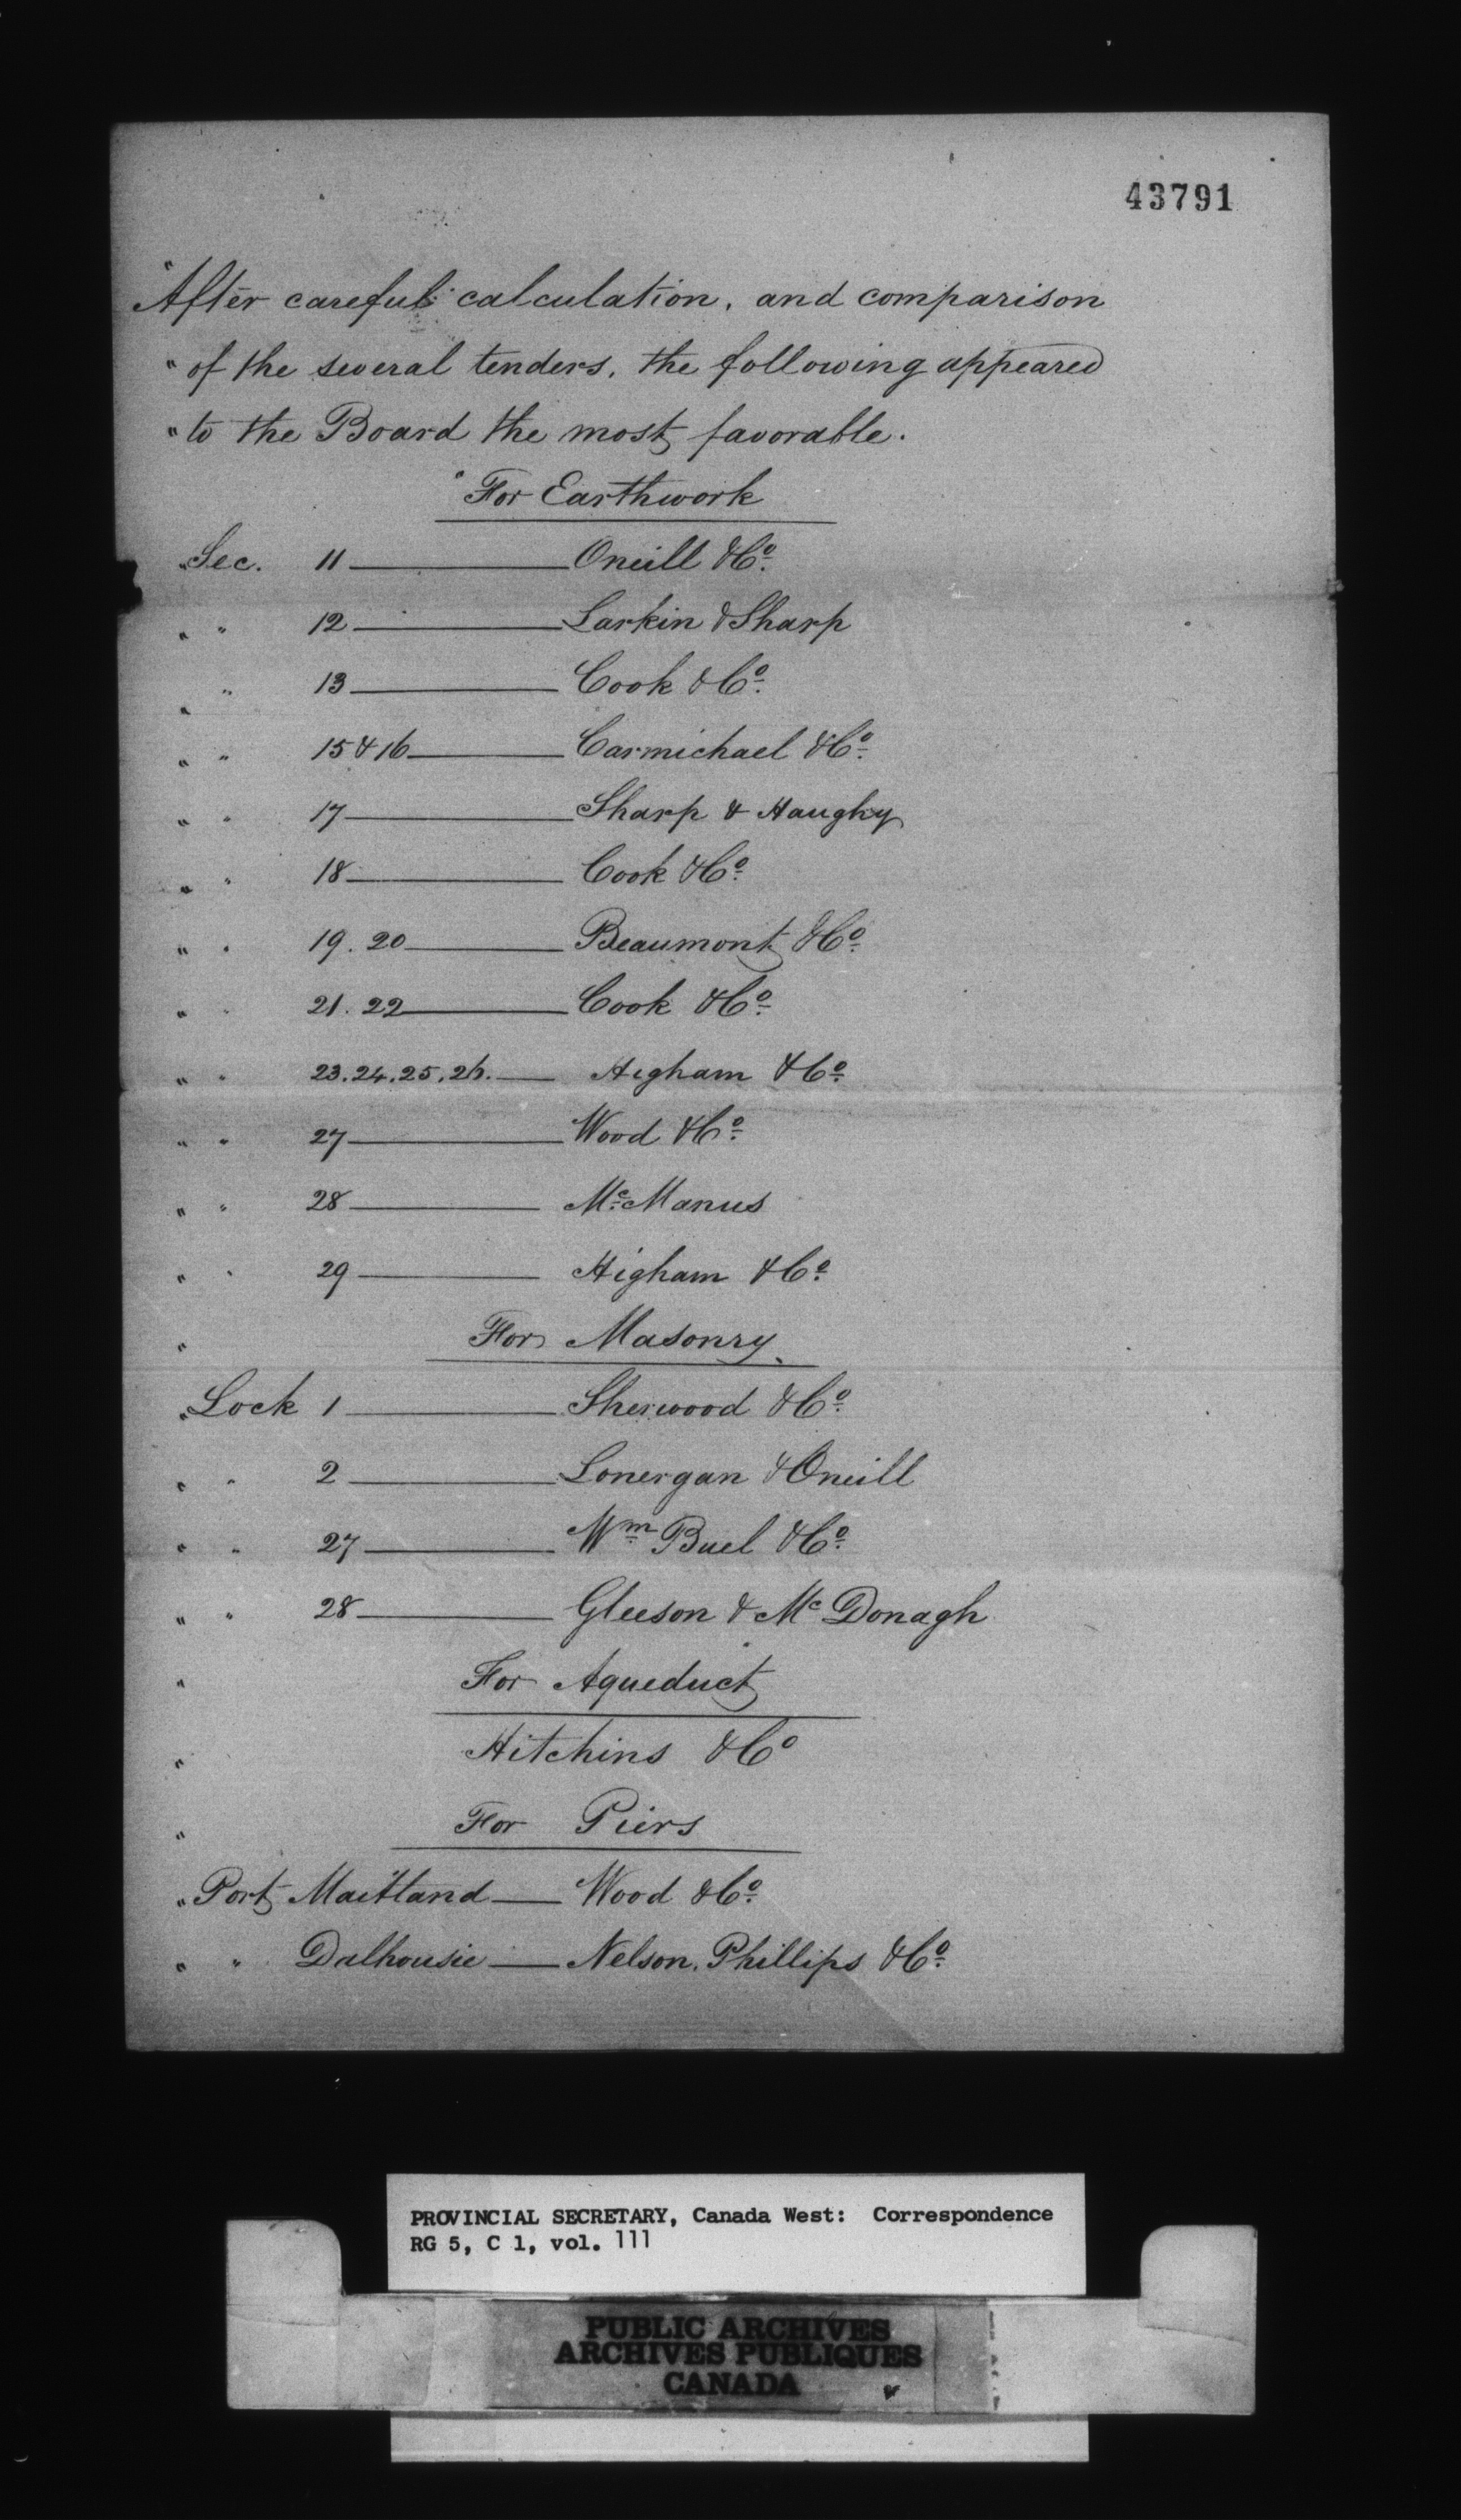 43791
"After careful calculation, and comparison
" of the several tenders, the following appeared
" to the Board the most favorable.
" For Earthwork
" Sec. 11 — Oneill & Co.
" " 12 — Larkin & Sharp
" " 13 — Cook & Co.
" " 15 & 16 — Carmichael & Co.
" " 17 — Sharp & Haughy
" " 18 — Cook & Co.
" " 19. 20 — Beaumont & Co.
" " 21. 22 — Cook & Co.
" " 23. 24. 25. 26. — Higham & Co.
" " 27 — Wood & Co.
" " 28 — McManus
" " 29 — Higham & Co.
" For Masonry
" Lock 1 — Sherwood & Co.
" " 2 — Lonergan & Oneill
" " 27 — Wm Buel & Co.
" " 28 — Gleeson & McDonagh
" For Aqueduct
" Hitchins & Co
" For Piers
" Port Maitland — Wood & Co.
" " Dalhousie — Nelson, Phillips & Co.
PROVINCIAL SECRETARY, Canada West: Correspondence
RG 5, C 1, vol. 111
PUBLIC ARCHIVES
ARCHIVES PUBLIQUES
CANADA